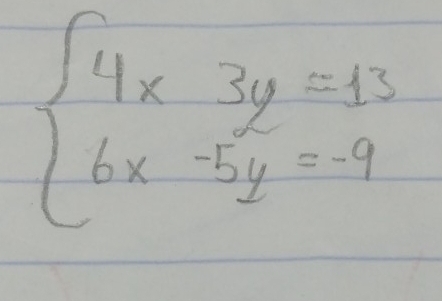 4x 3y = 13
6x -5y = -9